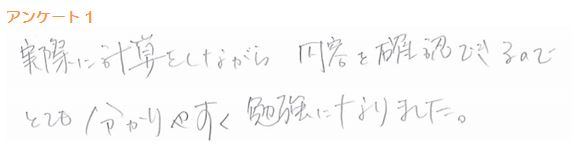 アンケート1
実際に計算をしながら 内容を確認できるので
とても分かりやすく勉強になりました。